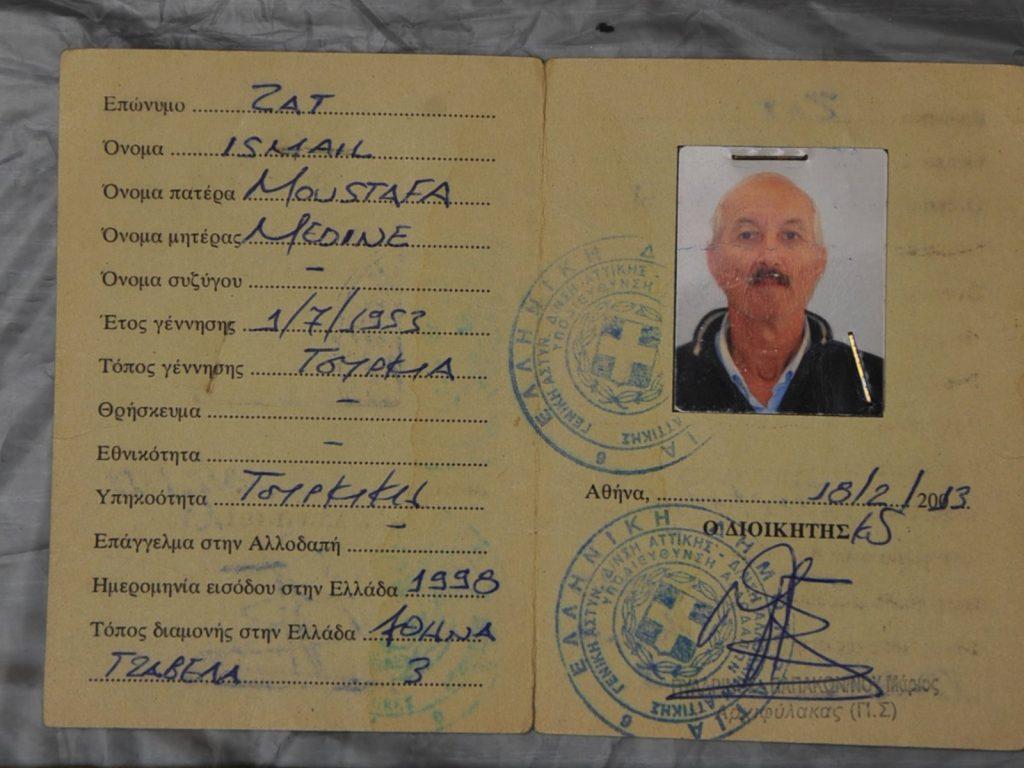 Επώνυμο ZAT
Όνομα ISMAIL
Όνομα πατέρα MOUSTAFA
Όνομα μητέρας MEDINE
Όνομα συζύγου –
Έτος γέννησης 1/7/1953
Τόπος γέννησης ΤΟΥΡΚΙΑ
Θρήσκευμα –
Εθνικότητα –
Υπηκοότητα ΤΟΥΡΚΙΚΗ
Επάγγελμα στην Αλλοδαπή –
Ημερομηνία εισόδου στην Ελλάδα 1998
Τόπος διαμονής στην Ελλάδα ΑΘΗΝΑ
ΤΖΑΒΕΛΑ 3
ΕΛΛΗΝΙΚΗ Δ
ΓΕΝΙΚΗ ΑΣΤΥΝ. Δ/ΝΣΗ ΑΤΤΙΚΗΣ
ΥΠΟΔΙΕΥΘΥΝΣΗ
ΑΤΤΙΚΗΣ
6
Αθήνα, 18/2/2013
Ο ΔΙΟΙΚΗΤΗΣ
ΕΛΛΗΝΙΚΗ ΔΗΜ
ΓΕΝΙΚΗ ΑΣΤΥΝ. Δ/ΝΣΗ ΑΤΤΙΚΗΣ
ΥΠΟΔΙΕΥΘΥΝΣΗ
ΑΤΤΙΚΗΣ
6
Μάριος
Αρχιφύλακας (Π.Σ)